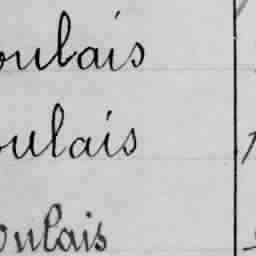 oulais
oulais
oulais